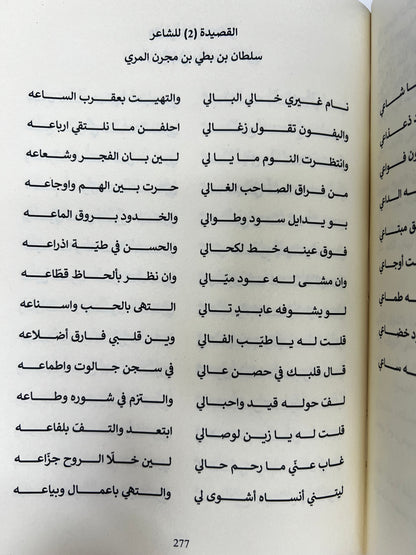 القصيدة (2) للشاعر
سلطان بن بطي بن مجرن المري
نام غيري خالي البالي والتهيت بعقرب الساعه
واليفون تقول زغالي احلفن ما نلتقي ارباعه
وانتظرت النوم ما يا لي لين بان الفجر وشعاعه
من فراق الصاحب الغالي حرت بين الهم واوجاعه
بو يدايل سود وطوالي والخدود بروق الماعه
فوق عينه خط لكحالي والحسن في طيّة اذراعه
وان مشى له عود ميّالي وان نظر بألحاظ قطّاعه
لو يشوفه عابدٍ تالي التهى بالحب واسناعه
قلت له يا طيّب الفالي وين قلبي فارق أضلاعه
قال قلبك في حصن عالي في سجن جالوت واطماعه
لفّ حوله قيد واحبالي والتزم في شوره وطاعه
قلت له يا زين لوصالي ابتعد والتفّ بلفاعه
غاب عنّي ما رحم حالي لين خلّا الروح جزّاعه
ليتني أنساه أشوى لي والتهي باعمال وبياعه
277